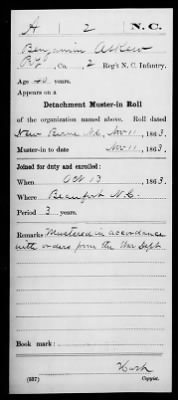 A 2 N.C.
Benjamin Askew
Pvt, Co. 2 Reg't N. C. Infantry.
Age 40 years.
Appears on a
Detachment Muster-in Roll
of the organization named above. Roll dated
New Berne N.C., Nov 11, 1863.
Muster-in to date Nov 11, 1863.
Joined for duty and enrolled:
When Oct 13, 1863.
Where Beaufort N.C.
Period 3 years.
Remarks Mustered in accordance
with orders from the War Dept.
Book mark:
(337) Copyist.